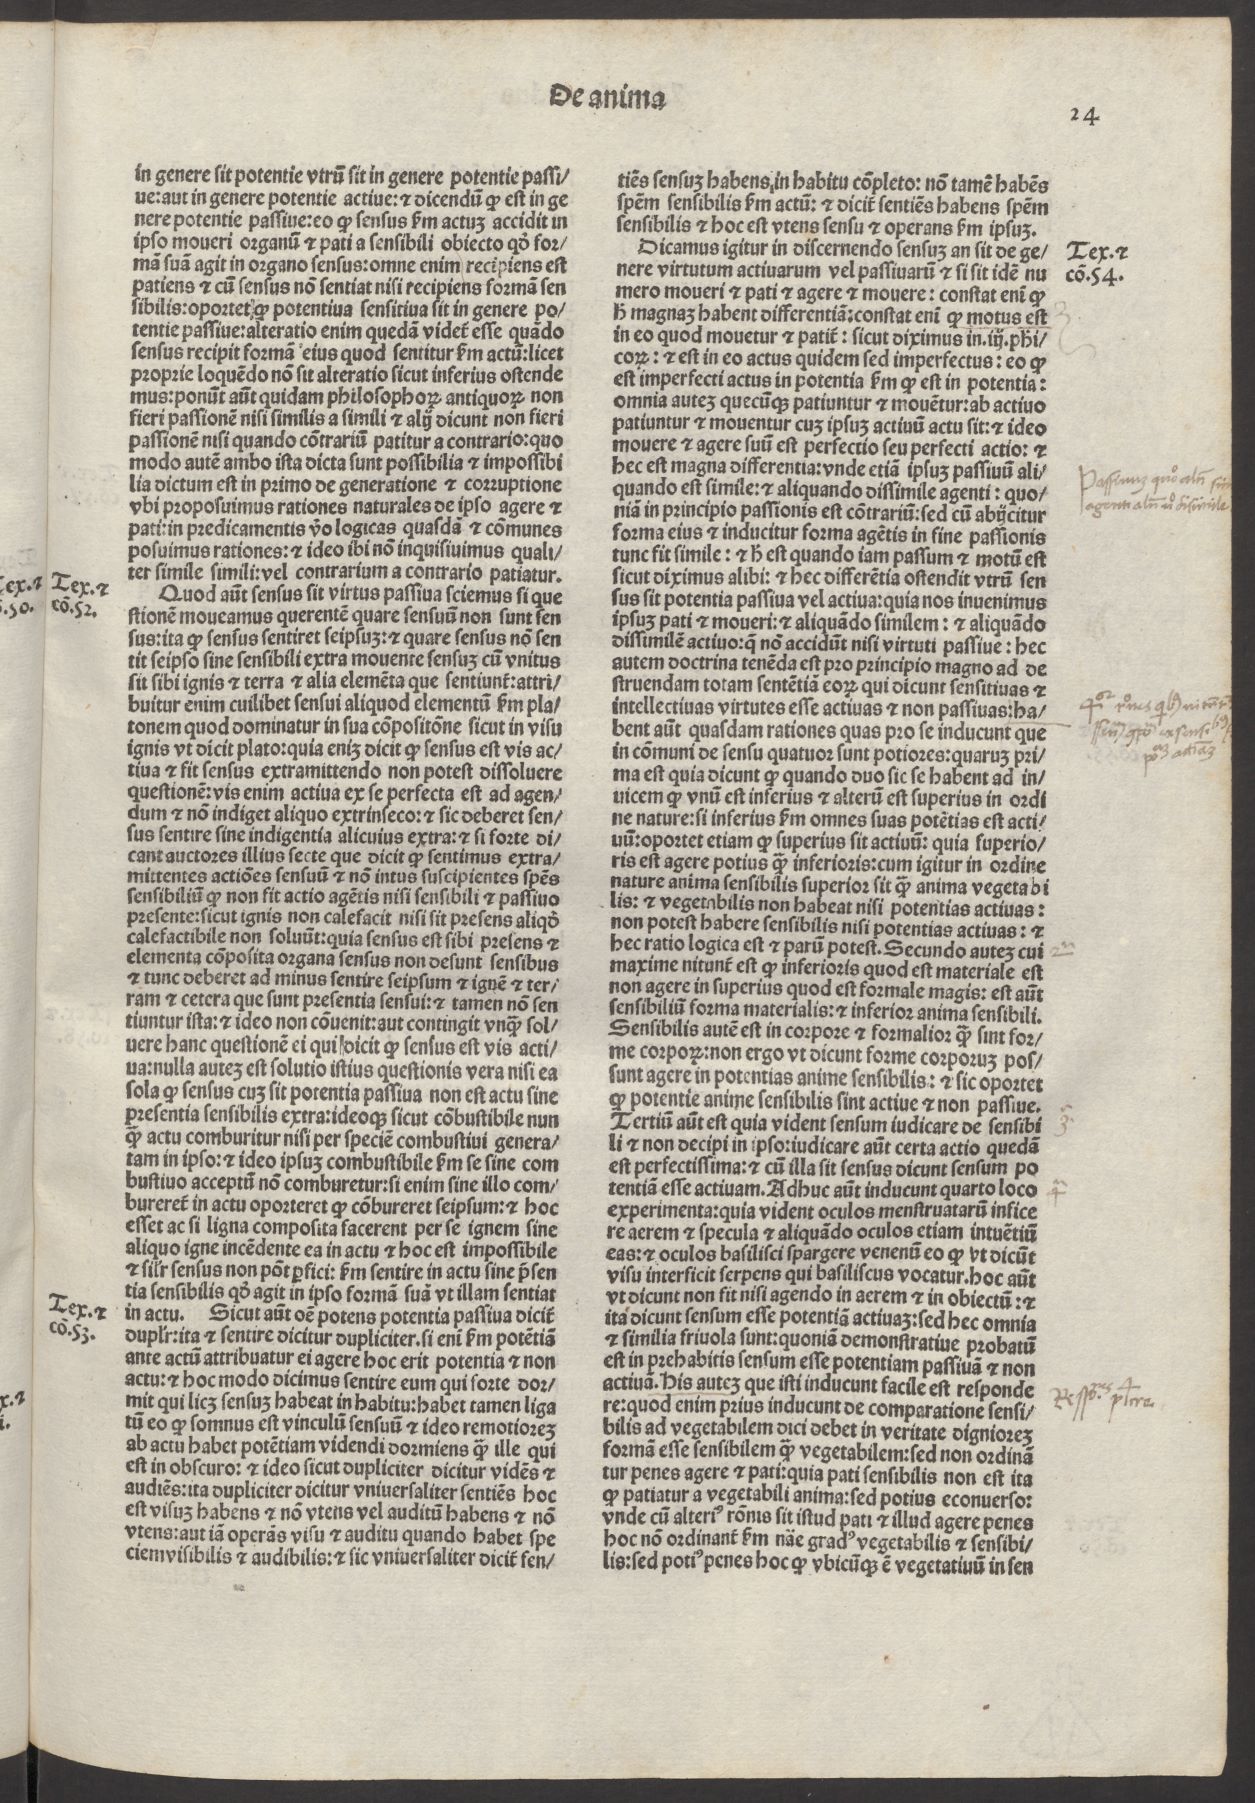 De anima
24
in genere sit potentie vtrū sit in genere potentie passi/
ue: aut in genere potentie actiue: ⁊ dicendū ꝙ est in ge
nere potentie passiue: eo ꝙ sensus ẜm actuꝫ accidit in
ipso moueri organū ⁊ pati a sensibili obiecto qd̓ for/
mā suā agit in organo sensus: omne enim recipiens est
patiens ⁊ cū sensus nō sentiat nisi recipiens formā sen
sibilis: oportet ꝙ potentiua sensitiua sit in genere po/
tentie passiue: alteratio enim quedā videt̄ esse quādo
sensus recipit formā eius quod sentitur ẜm actū: licet
proprie loquēdo nō sit alteratio sicut inferius ostende
mus: ponūt aūt quidam philosophoꝝ antiquoꝝ non
fieri passionē nisi similis a simili ⁊ alij dicunt non fieri
passionē nisi quando cōtrariū patitur a contrario: quo
modo autē ambo ista dicta sunt possibilia ⁊ impossibi
lia dictum est in primo de generatione ⁊ corruptione
vbi proposuimus rationes naturales de ipso agere ⁊
pati: in predicamentis v̊o logicas quasdā ⁊ cōmunes
posuimus rationes: ⁊ ideo ibi nō inquisiuimus quali/
ter simile simili: vel contrarium a contrario patiatur.
Tex. ⁊
cō. 52.
Quod aūt sensus sit virtus passiua sciemus si que
stionē moueamus querentē quare sensuū non sunt sen
sus: ita ꝙ sensus sentiret seipsuꝫ: ⁊ quare sensus nō sen
tit seipso sine sensibili extra mouente sensuꝫ cū vnitus
sit sibi ignis ⁊ terra ⁊ alia elemēta que sentiunt̄: attri/
buitur enim cuilibet sensui aliquod elementū ẜm pla/
tonem quod dominatur in sua cōpositōne sicut in visu
ignis vt dicit plato: quia enim dicit ꝙ sensus est vis ac/
tiua ⁊ fit sensus extramittendo non potest dissoluere
questionē: vis enim actiua ex se perfecta est ad agen/
dum ⁊ nō indiget aliquo extrinseco: ⁊ sic deberet sen/
sus sentire sine indigentia alicuius extra: ⁊ si forte di/
cant auctores illius secte que dicit ꝙ sentimus extra/
mittentes actiōes sensuū ⁊ nō intus suscipientes spēs
sensibiliū ꝙ non fit actio agētis nisi sensibili ⁊ passiuo
presente: sicut ignis non calefacit nisi sit presens aliqd̓
calefactibile non soluūt: quia sensus est sibi presens ⁊
elementa cōposita organa sensus non desunt sensibus
⁊ tunc deberet ad minus sentire seipsum ⁊ ignē ⁊ ter/
ram ⁊ cetera que sunt presentia sensui: ⁊ tamen nō sen
tiuntur ista: ⁊ ideo non cōuenit: aut contingit vnqȝ sol/
uere hanc questionē ei qui dicit ꝙ sensus est vis acti/
ua: nulla autez est solutio istius questionis vera nisi ea
sola ꝙ sensus cuꝫ sit potentia passiua non est actu sine
presentia sensibilis extra: ideoqꝫ sicut cōbustibile nun
qȝ actu comburitur nisi per speciē combustiui genera/
tam in ipso: ⁊ ideo ipsuꝫ combustibile ẜm se sine com
bustiuo acceptū nō comburetur: si enim sine illo com/
bureret̄ in actu oporteret ꝙ cōbureret seipsum: ⁊ hoc
esset ac si ligna composita facerent per se ignem sine
aliquo igne incēdente ea in actu ⁊ hoc est impossibile
⁊ silr̄ sensus non pōt ꝑfici: ẜm sentire in actu sine p̄sen
tia sensibilis qd̓ agit in ipso formā suā vt illam sentiat
in actu. Sicut aūt oē potens potentia passiua dicit̄
Tex. ⁊
cō. 53.
duplr̄: ita ⁊ sentire dicitur dupliciter. si enī ẜm potētiā
ante actū attribuatur ei agere hoc erit potentia ⁊ non
actu: ⁊ hoc modo dicimus sentire eum qui forte dor/
mit qui licꝫ sensuꝫ habeat in habitu: habet tamen liga
tū eo ꝙ somnus est vinculū sensuū ⁊ ideo remotiorez
ab actu habet potētiam videndi dormiens qȝ ille qui
est in obscuro: ⁊ ideo sicut dupliciter dicitur vidēs ⁊
audiēs: ita dupliciter dicitur vniuersaliter sentiēs hoc
est visuꝫ habens ⁊ nō vtens vel auditū habens ⁊ nō
vtens: aut iā operās visu ⁊ auditu quando habet spe
ciem visibilis ⁊ audibilis: ⁊ sic vniuersaliter dicit̄ sen/
tiēs sensuꝫ habens in habitu cōpleto: nō tamē habēs
spēm sensibilis ẜm actū: ⁊ dicit̄ sentiēs habens spēm
sensibilis ⁊ hoc est vtens sensu ⁊ operans ẜm ipsuꝫ.
Tex. ⁊
cō. 54.
Dicamus igitur in discernendo sensuꝫ an sit de ge/
nere virtutum actiuarum vel passiuarū ⁊ si sit idē nu
mero moueri ⁊ pati ⁊ agere ⁊ mouere: constat enī ꝙ
h̄ magnaꝫ habent differentiā: constat enī ꝙ motus est
in eo quod mouetur ⁊ patit̄: sicut diximus in. iij. phi/
coꝝ: ⁊ est in eo actus quidem sed imperfectus: eo ꝙ
est imperfecti actus in potentia ẜm ꝙ est in potentia:
omnia autez quecūqꝫ patiuntur ⁊ mouētur: ab actiuo
patiuntur ⁊ mouentur cuꝫ ipsuꝫ actiuū actu sit: ⁊ ideo
mouere ⁊ agere suū est perfectio seu perfecti actio: ⁊
hec est magna differentia: vnde etiā ipsuꝫ passiuū ali/
quando est simile: ⁊ aliquando dissimile agenti: quo/
niā in principio passionis est cōtrariū: sed cū abijcitur
forma eius ⁊ inducitur forma agētis in fine passionis
tunc fit simile: ⁊ h̄ est quando iam passum ⁊ motū est
sicut diximus alibi: ⁊ hec differētia ostendit vtrū sen
sus sit potentia passiua vel actiua: quia nos inuenimus
ipsuꝫ pati ⁊ moueri: ⁊ aliquādo similem: ⁊ aliquādo
dissimilē actiuo: q̄ nō accidūt nisi virtuti passiue: hec
autem doctrina tenēda est pro principio magno ad de
struendam totam sentētiā eoꝝ qui dicunt sensitiuas ⁊
intellectiuas virtutes esse actiuas ⁊ non passiuas: ha/
bent aūt quasdam rationes quas pro se inducunt que
in cōmuni de sensu quatuor sunt potiores: quaruꝫ pri/
ma est quia dicunt ꝙ quando duo sic se habent ad in/
uicem ꝙ vnū est inferius ⁊ alterū est superius in ordi
ne nature: si inferius ẜm omnes suas potētias est acti/
uū: oportet etiam ꝙ superius sit actiuū: quia superio/
ris est agere potius qȝ inferioris: cum igitur in ordine
nature anima sensibilis superior sit qȝ anima vegetabi
lis: ⁊ vegetabilis non habeat nisi potentias actiuas:
non potest habere sensibilis nisi potentias actiuas: ⁊
hec ratio logica est ⁊ parū potest. Secundo autez cui
maxime nitunt̄ est ꝙ inferioris quod est materiale est
non agere in superius quod est formale magis: est aūt
sensibiliū forma materialis: ⁊ inferior anima sensibili.
Sensibilis autē est in corpore ⁊ formalior qȝ sint for/
me corpoꝝ: non ergo vt dicunt forme corporuꝫ pos/
sunt agere in potentias anime sensibilis: ⁊ sic oportet
ꝙ potentie anime sensibilis sint actiue ⁊ non passiue.
Tertiū aūt est quia vident sensum iudicare de sensibi
li ⁊ non decipi in ipso: iudicare aūt certa actio quedā
est perfectissima: ⁊ cū illa sit sensus dicunt sensum po
tentiā esse actiuam. Adhuc aūt inducunt quarto loco
experimenta: quia vident oculos menstruatarū infice
re aerem ⁊ specula ⁊ aliquādo oculos etiam intuētiū
eas: ⁊ oculos basilisci spargere venenū eo ꝙ vt dicūt
visu interficit serpens qui basiliscus vocatur. hoc aūt
vt dicunt non fit nisi agendo in aerem ⁊ in obiectū: ⁊
ita dicunt sensum esse potentiā actiuaꝫ: sed hec omnia
⁊ similia friuola sunt: quoniā demonstratiue probatū
est in prehabitis sensum esse potentiam passiuā ⁊ non
actiuā. His autez que isti inducunt facile est responde
re: quod enim prius inducunt de comparatione sensi/
bilis ad vegetabilem dici debet in veritate digniorez
formā esse sensibilem qȝ vegetabilem: sed non ordinā
tur penes agere ⁊ pati: quia pati sensibilis non est ita
ꝙ patiatur a vegetabili anima: sed potius econuerso:
vnde cū alteriꝰ rōnis sit istud pati ⁊ illud agere penes
hoc nō ordinant̄ ẜm nāe gradꝰ vegetabilis ⁊ sensibi/
lis: sed potiꝰ penes hoc ꝙ vbicūqꝫ ē vegetatiuū in sen